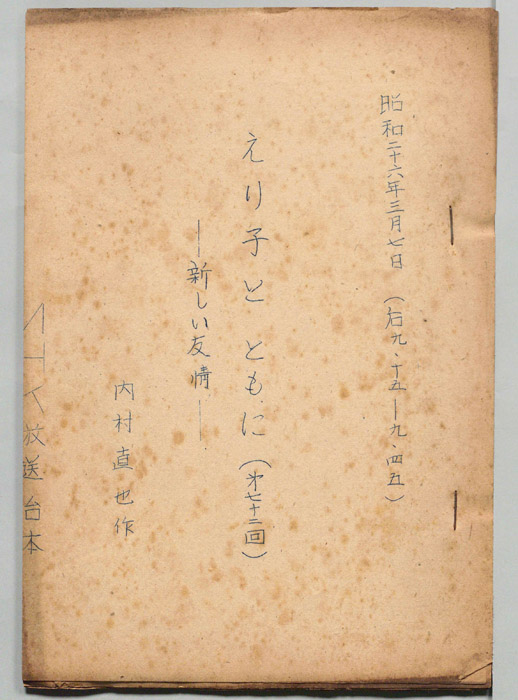 昭和二十六年三月七日（后九・十五―九・四五）
えり子とともに（㐧七十二回）
―新しい友情―
内村直也作
NHK放送台本